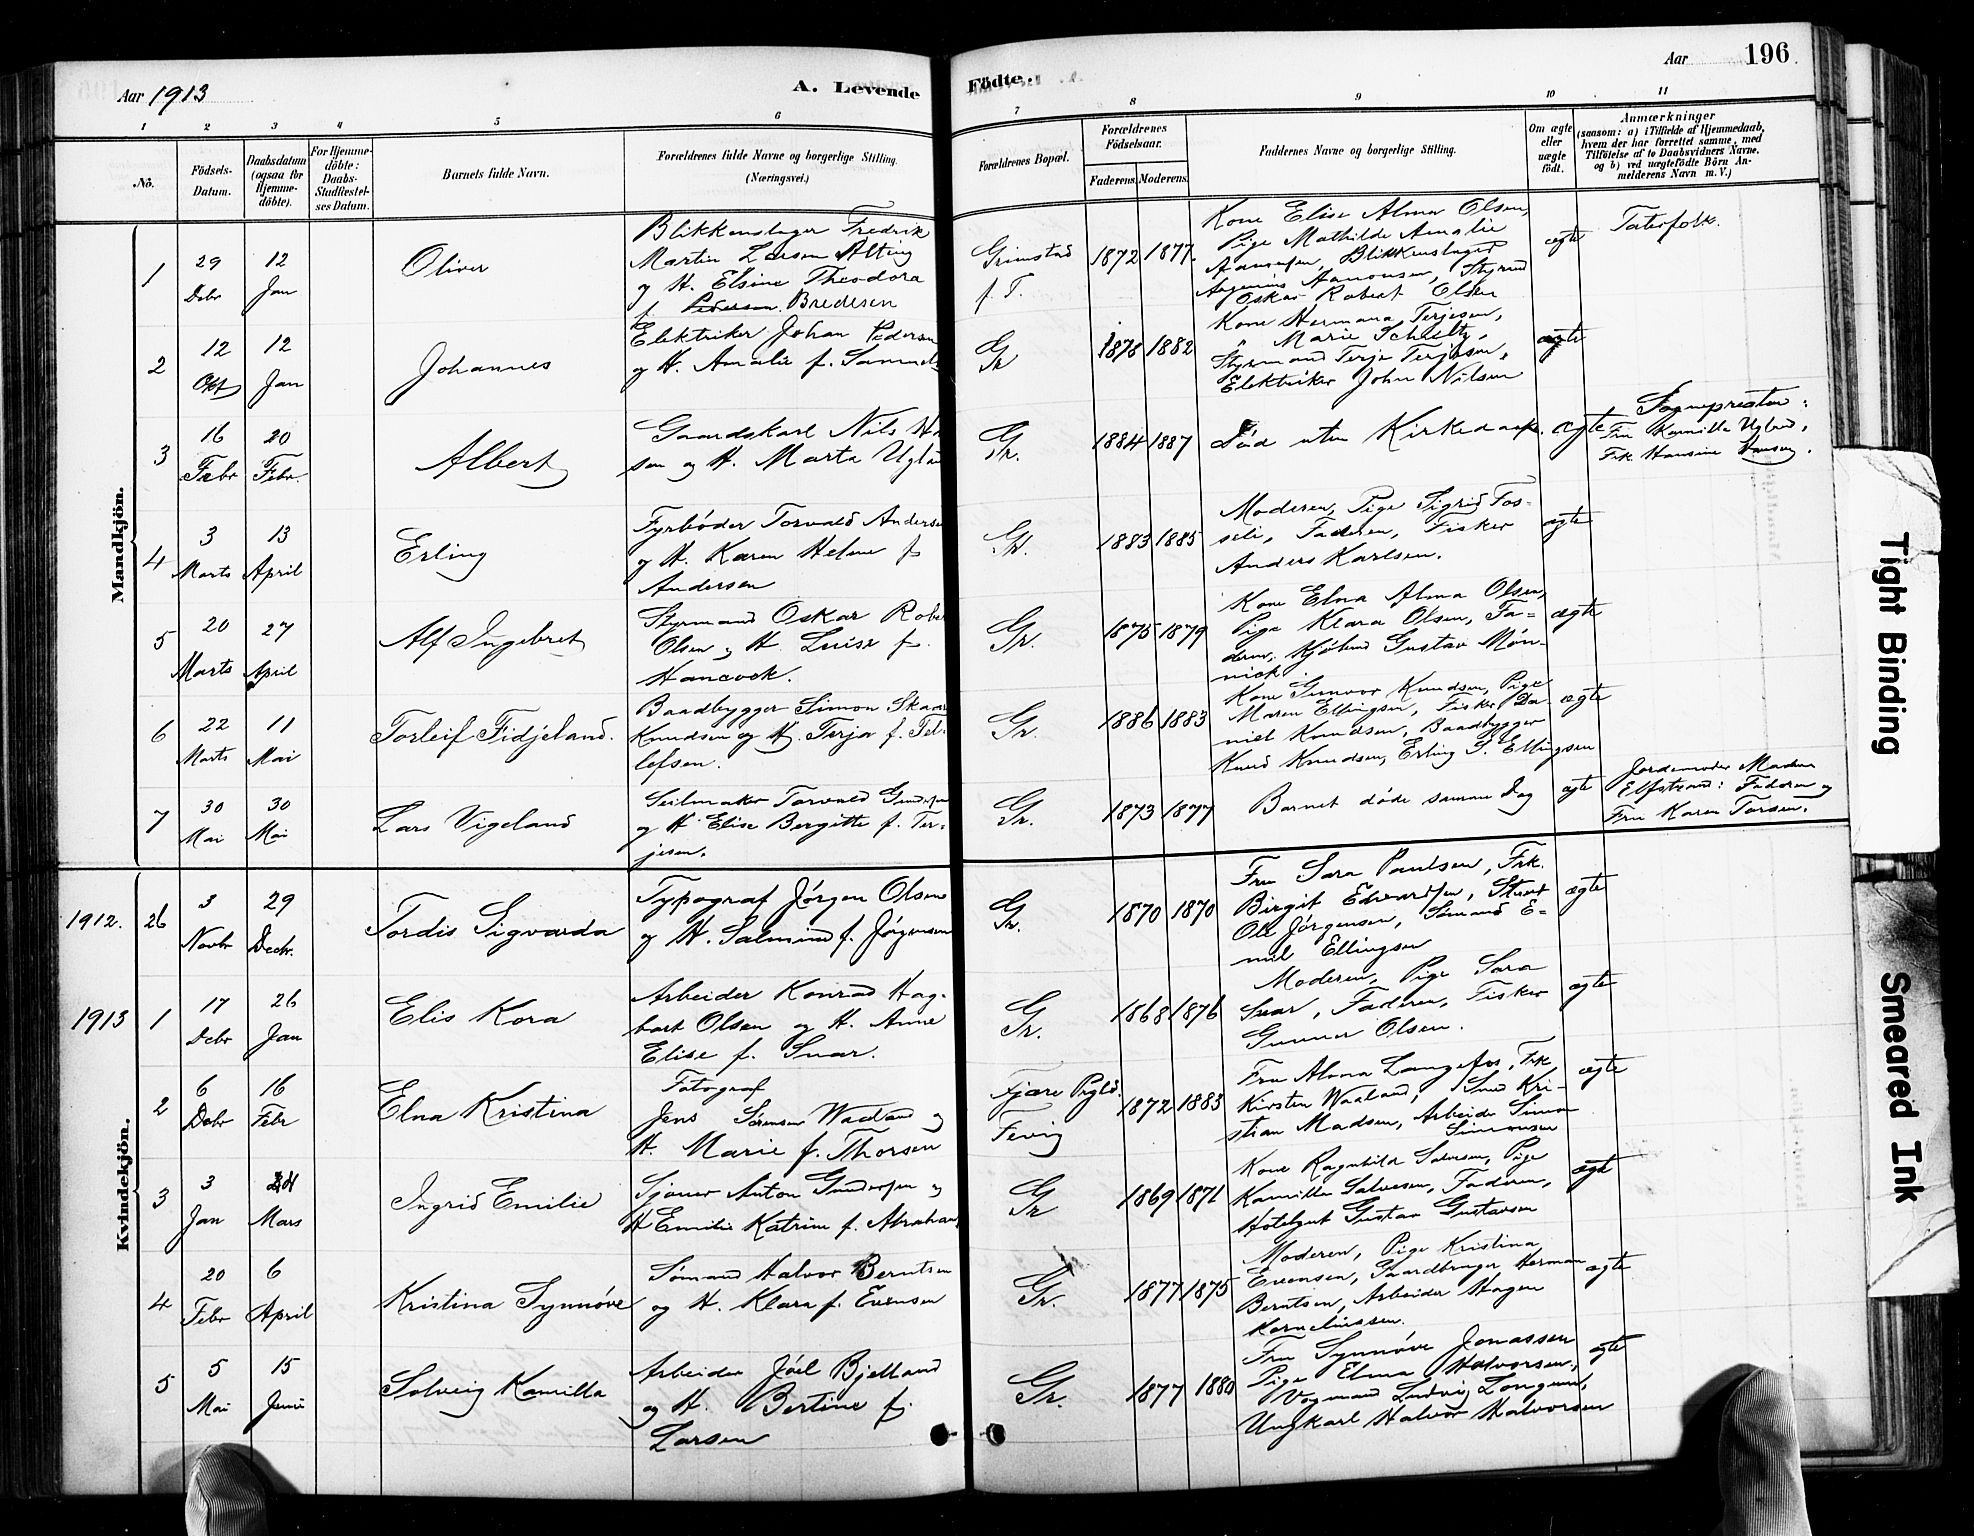 Aar 1913
A. Levende
Födte.
Aar
196
1 2 3 4 5 6 7 8 9 10 11
No.
Födsels-
Datum.
Daabsdatum
(ogsaa for
Hjemme-
döbte).
For Hjemme-
döbte:
Daabs-
Stadfæstel-
ses Datum.
Barnets fulde Navn.
Forældrenes fulde Navne og borgerlige Stilling.
(Næringsvei.)
Forældrenes Bopæl.
Forældrenes
Födselsaar.
Faderens. Moderens.
Faddernes Navne og borgerlige Stilling.
Om ægte
eller
uægte
födt.
Anmærkninger
(saasom: a) i Tilfælde af Hjemmedaab,
hvem der har forrettet samme, med
Tilföielse af to Daabsvidners Navne.
og b) ved uægtefödte Börn An-
melderens Navn m. V.)
Mandkjön.
1
29
Debr
12
Jan
Oliver
Blikkenslager Fredrik
Martin Larsen Alting
og H. Elsine Theodora
f. Pedersen Bredesen
Grimstad
f. T.
1872 1877.
Kone Elise Alma Olsen,
Pige Mathilde Amalie
Aanonsen, Blikkenslager
Aanonsen, Styrmd
Oskar Robert Olsen
ægte
Taterfolk.
2
12
Okt
12
Jan
Johannes
Elektriker Johan Pedersen
og H. Amalie f. Samuels
Gr
1878 1882
Kone Hermana Terjesen,
" Marie Schultz,
Styrmand Terje Terjesen,
Elektriker John Nilsen
ægte
3
16
Febr
20
Febr.
Albert
Gaardskarl Nils
sen og H. Marta Ugland
Gr.
1884 1887
Död uten Kirkedaab.
ægte
Sognepresten:
Fru Kamilla Ugland,
Frk. Hansine Hansen.
4
3
Marts
13
April
Erling
Fyrbøder Torvald Andersen
og H. Karen Helene f.
Andersen
Gr.
1883 1885
Moderen, Pige Sigrid Fos-
seli, Faderen, Fisker
Anders Karlsen.
ægte
5
20
Marts
27
April
Alf Ingebret
Styrmand Oskar Robe
Olsen og H. Luise f.
Hancock.
Gr.
1875 1879
Kone Elna Alma Olsen,
Pige Klara Olsen, Fa-
deren, Gustav Møn-
nick.
ægte
6
22
Marts
11
Mai
Torleif Fidjeland.
Baadbygger Simon Skaar
Knudsen og H. Terja f. Tel-
lefsen.
Gr.
1886 1883
Kone Gunvor Knudsen, Pige
Maren Ellingsen, Fisker Da-
niel Knudsen, Baadbygger
Knud Knudsen, Erling S. Ellingsen
ægte
7
30
Mai
30
Mai
Lars Vigeland
Seilmaker Torvald Gundersen
og H. Elise Bergitte f. Ter-
jesen.
Gr.
1873 1877
Barnet døde samme Dag
ægte
Jordemoder Madam
Elfstrand: Faderen og
Fru Karen Torsen.
Kvindekjön.
1912.
26
3
Novbr
29
Decbr.
Tordis Sigvarda
Typograf Jørgen Olsen
og H. Salmine f. Jørgensen
Gr.
1870 1870
Fru Sara Paulsen, Frk.
Birgit Edvardsen, Stuert
Ole Jörgensen, Sømand E-
mil Ellingsen
ægte
1913
1
17
Debr
26
Jan
Elis Kora
Arbeider Konrad Hag-
bart Olsen og H. Anne
Elise f. Snar.
Gr.
1868 1876
Moderen, Pige Sara
Snar, Faderen, Fisker
Gunnar Olsen.
ægte
2
6
Debr
16
Febr
Elna Kristina
Fotograf
Jens Sørensen Waaland og
H. Marie f. Thorsen
Fjære Pgld.
Fevig
1872 1883
Fru Alma Langefos, Frk
Kirsten Waaland, Smed Kri-
stian Madsen, Arbeider Simon
Simonsen
ægte
3
3
Jan
24
Mars
Ingrid Emilie
Sjauer Anton Gundersen og
H Emilie Katrine f. Abraham
Gr
1869 1871
Kone Ragnhild Salvesen, Pige
Kamilla Salvesen, Faderen,
Hotelgut Gustav Gustavsen
ægte
4
20
Febr
6
April
Kristina Synnøve
Sømand Halvor Berntsen
og H. Klara f. Evensen
Gr.
1877 1875
Moderen, Pige Kristina
Evensen, Gaardbruger Herman
Berntsen, Arbeider Hagen
Korneliussen.
ægte
5
5
Mai
15
Juni
Solveig Kamilla
Arbeider Jóel Bjelland
og H. Bertine f.
Larsen
Gr.
1877 1880
Fru Synnöve Jonassen
Pige Elma Halvorsen,
Vognmand Ludvig Longum,
Ungkarl Halvor Halvorsen
ægte
Tight Binding
Smeared Ink